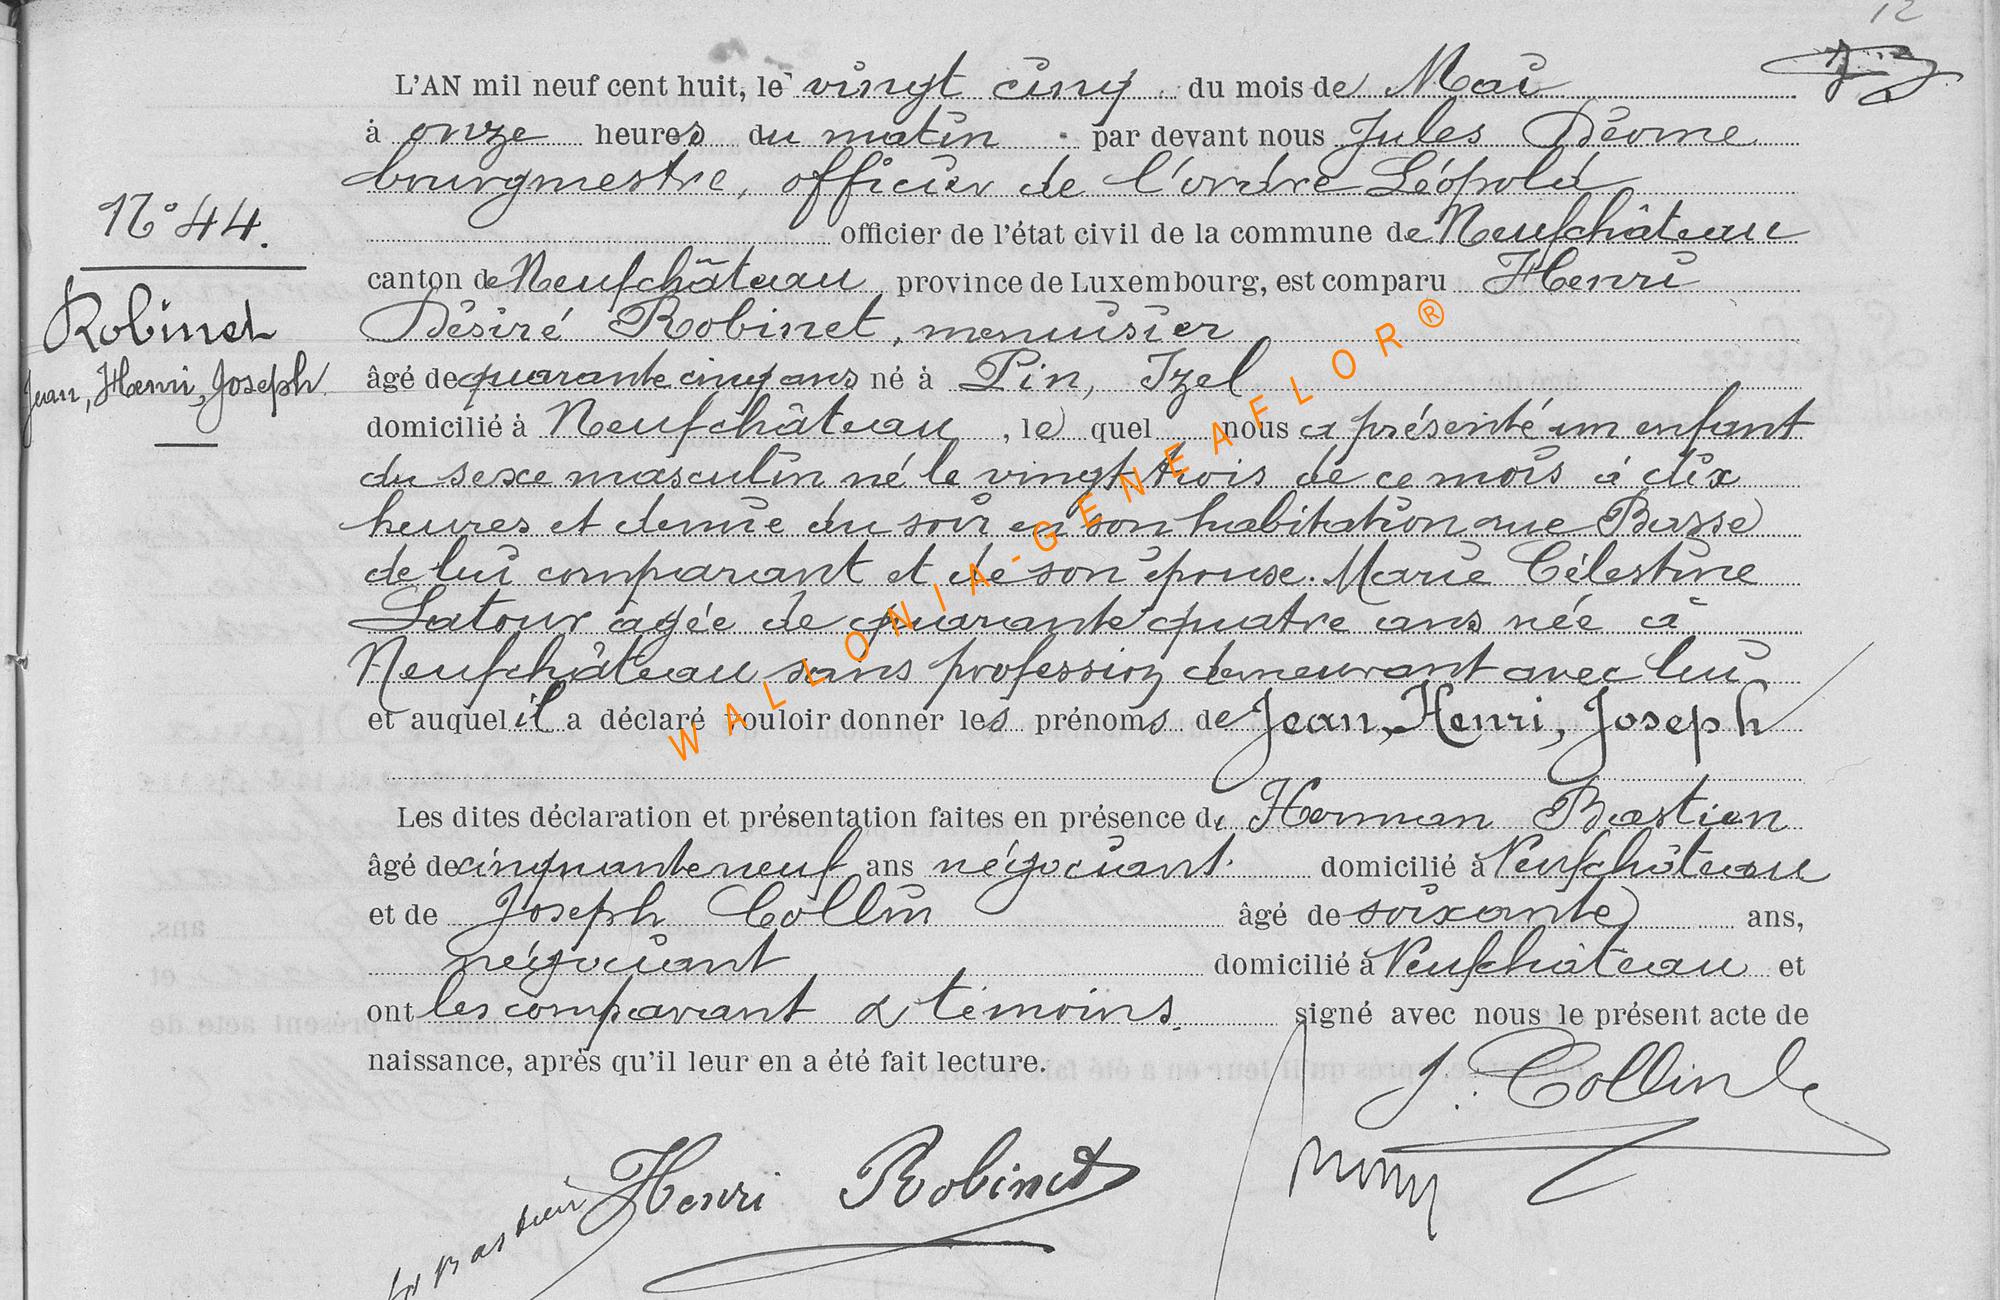 12
L'AN mil neuf cent huit, le vingt cinq du mois de Mai
à onze heures du matin par devant nous Jules Déome
bourgmestre, officier de l'ordre Léopold
officier de l'état civil de la commune de Neufchâteau
canton de Neufchâteau province de Luxembourg, est comparu Henri
Désiré Robinet, menuisier
âgé de quarante cinq ans né à Pin, Izel
domicilié à Neufchâteau, le quel nous a présenté un enfant
du sexe masculin né le vingt trois de ce mois à dix
heures et demie du soir en son habitation rue Basse
de lui comparant et de son épouse. Marie Célestine
Latour âgée de quarante quatre ans née à
Neufchâteau sans profession demeurant avec lui
et auquel il a déclaré vouloir donner les prénoms de Jean, Henri, Joseph
Les dites déclaration et présentation faites en présence de Herman Bastien
âgé de cinquante neuf ans négociant domicilié à Neufchâteau
et de Joseph Collin âgé de soixante ans,
négociant domicilié à Neufchâteau et
ont les comparant & témoins signé avec nous le présent acte de
naissance, après qu'il leur en a été fait lecture.
N° 44.
Robinet
Jean, Henri, Joseph
J. Collin
Henri Robinet
Bastien
WALLONIA-GENEAFLOR®